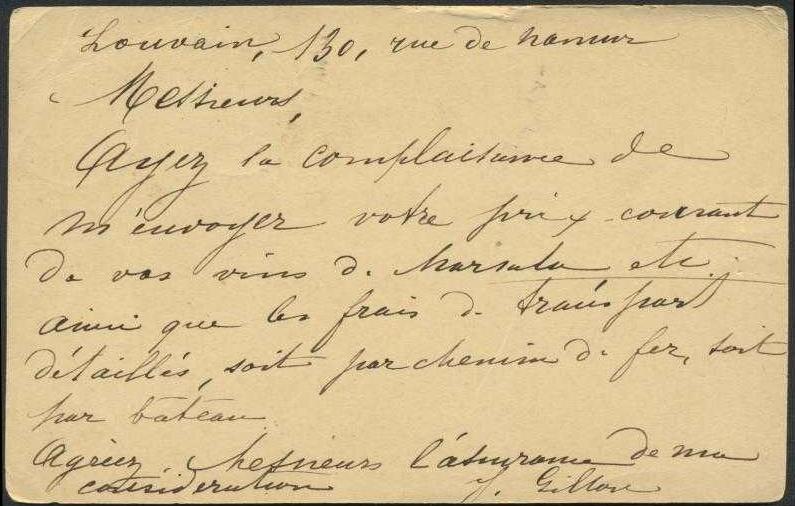 Louvain, 130, rue de namur
Messieurs,
Ayez la complaisance de
m'envoyer votre prix-courant
de vos vins de Marsala etc.
ainsi que les frais de transport
détaillés, soit par chemin de fer, soit
par bâteau
Agréez Messieurs l'assurance de ma
considération J. Gillon